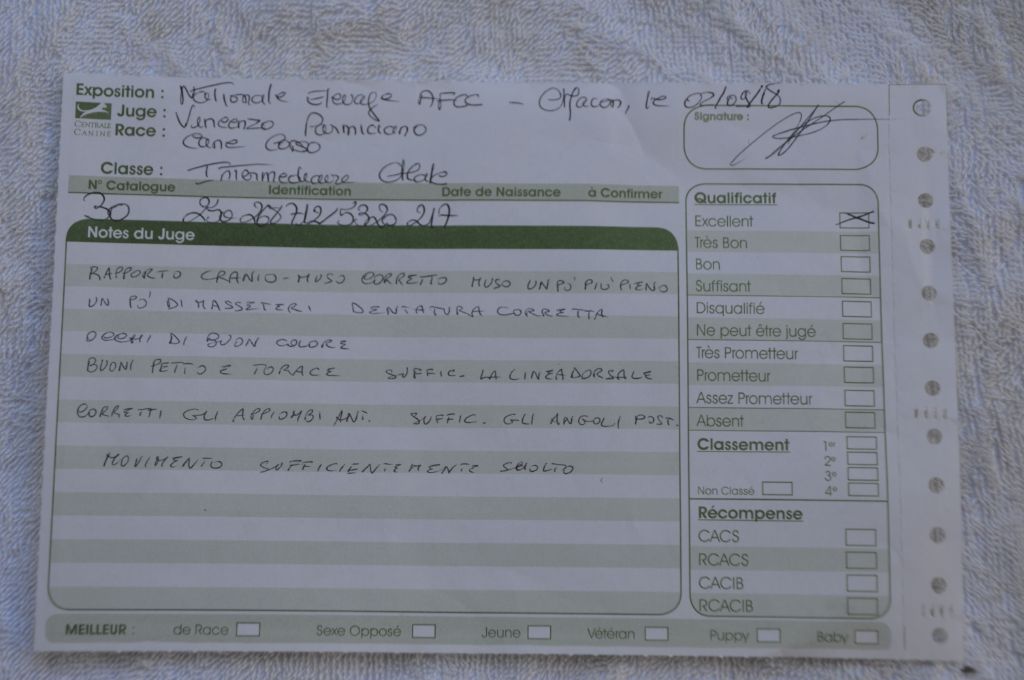 Exposition : Nationale Elevage AFCC - Macon, le 02/09/18
CENTRALE CANINE
Juge : Vincenzo Parmiciano
Race : Cane Corso
Signature :
Classe : Intermediaire
N° Catalogue Identification Date de Naissance à Confirmer
30 250 268712/5320 217
Notes du Juge
RAPPORTO CRANIO-MUSO CORRETTO MUSO UN PO' PIU' PIENO
UN PO' DI MASSETERI DENTATURA CORRETTA
OCCHI DI BUON COLORE
BUONI PETTO E TORACE SUFFIC. LA LINEA DORSALE
CORRETTI GLI APPIOMBI ANT. SUFFIC. GLI ANGOLI POST.
MOVIMENTO SUFFICIENTEMENTE SCIOLTO
Qualificatif
Excellent
Très Bon
Bon
Suffisant
Disqualifié
Ne peut être jugé
Très Prometteur
Prometteur
Assez Prometteur
Absent
Classement 1er
2e
3e
Non Classé 4e
Récompense
CACS
RCACS
CACIB
RCACIB
MEILLEUR : de Race Sexe Opposé Jeune Vétéran Puppy Baby